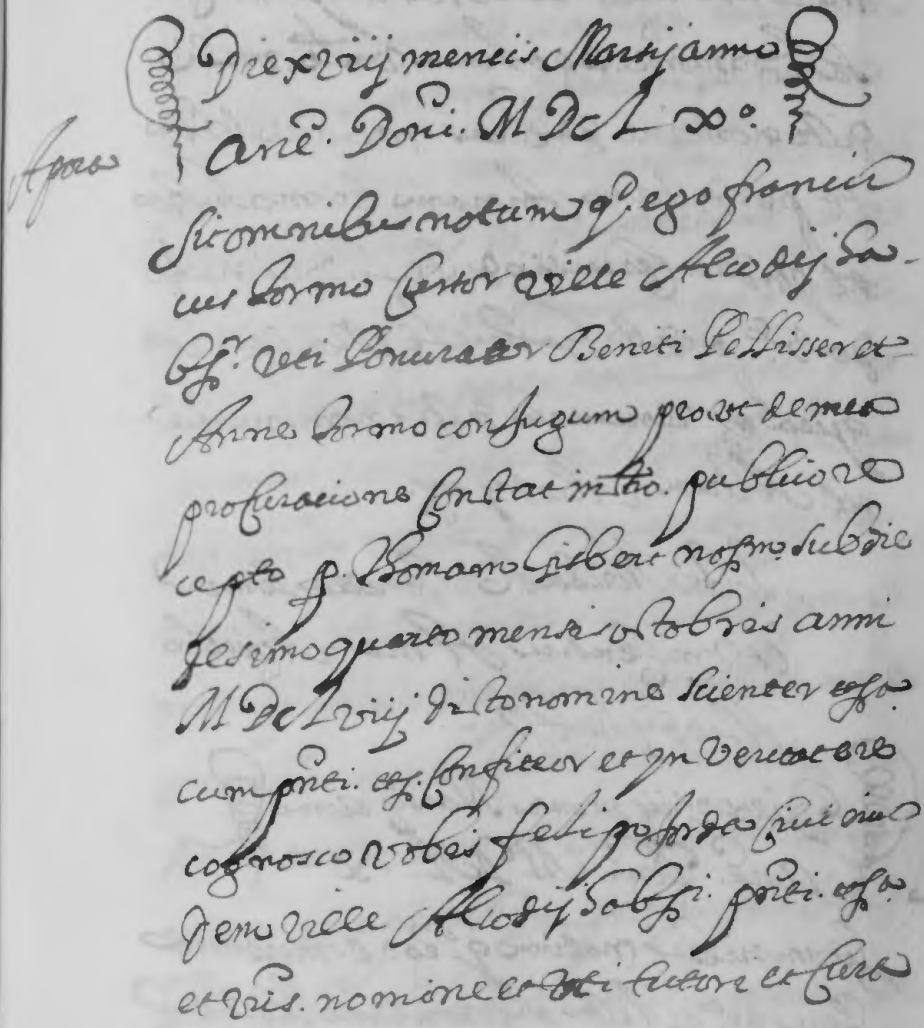 Die xviij mencis Martij anno
Apoca
a natē. Domi. M DCL x°.
Sit omnibus notum q̄. ego francis
cus tormo Cursor ville Alcodij ha
btr. veti Procurator Beniti Pellisser et
Anne tormo conjugum prout de mea
procuracione Constat instro. publico re
cepto p. Thomam Gisbert notm. sub die
gesimo quarto mensis octobris anni
M DCL viij dicto nomine scienter etsa.
cum pnti. etc. Confiteor et in veritate re
cognosco vobis felipo Jorda Civi eius
dem ville Alcodij habti. pnti. etsa.
et vris. nomine et veti tutori et Cura